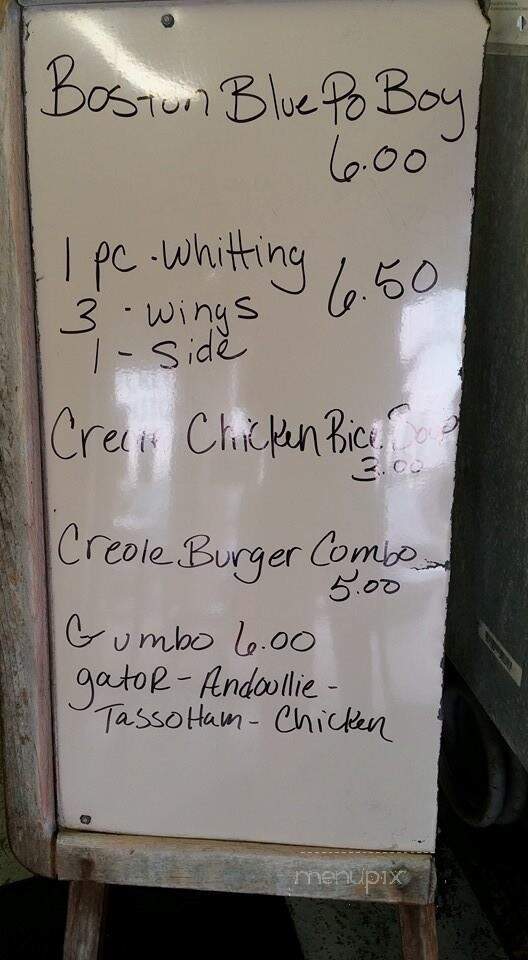 Boston Blue Po Boy
6.00
1 pc - Whitting
6.50
3 - wings
1 - Side
Cream Chicken Rice Soup
3.00
Creole Burger Combo
5.00
Gumbo 6.00
gatoR - Andoullie -
Tasso Ham - Chicken
menupix